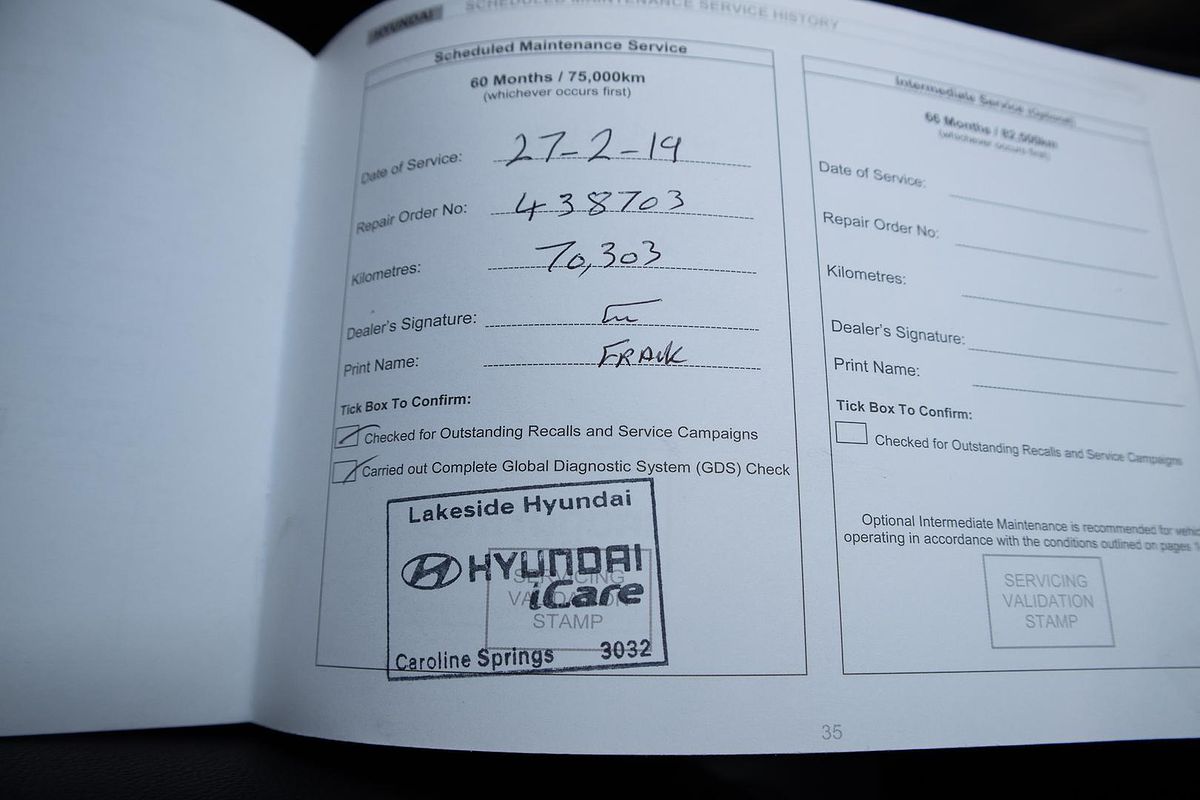 HYUNDAI
SCHEDULED MAINTENANCE SERVICE HISTORY
Scheduled Maintenance Service
60 Months / 75,000km
(whichever occurs first)
Date of Service: 27-2-19
Repair Order No: 438703
Kilometres: 70,303
Dealer's Signature:
Print Name: FRANK
Tick Box To Confirm:
Checked for Outstanding Recalls and Service Campaigns
Carried out Complete Global Diagnostic System (GDS) Check
Lakeside Hyundai
HYUNDAI
iCare
Caroline Springs 3032
SERVICING
VALIDATION
STAMP
Intermediate Service (Optional)
66 Months / 82,500km
(whichever occurs first)
Date of Service:
Repair Order No:
Kilometres:
Dealer's Signature:
Print Name:
Tick Box To Confirm:
Checked for Outstanding Recalls and Service Campaigns
Optional Intermediate Maintenance is recommended for
operating in accordance with the conditions outlined on pages
SERVICING
VALIDATION
STAMP
35